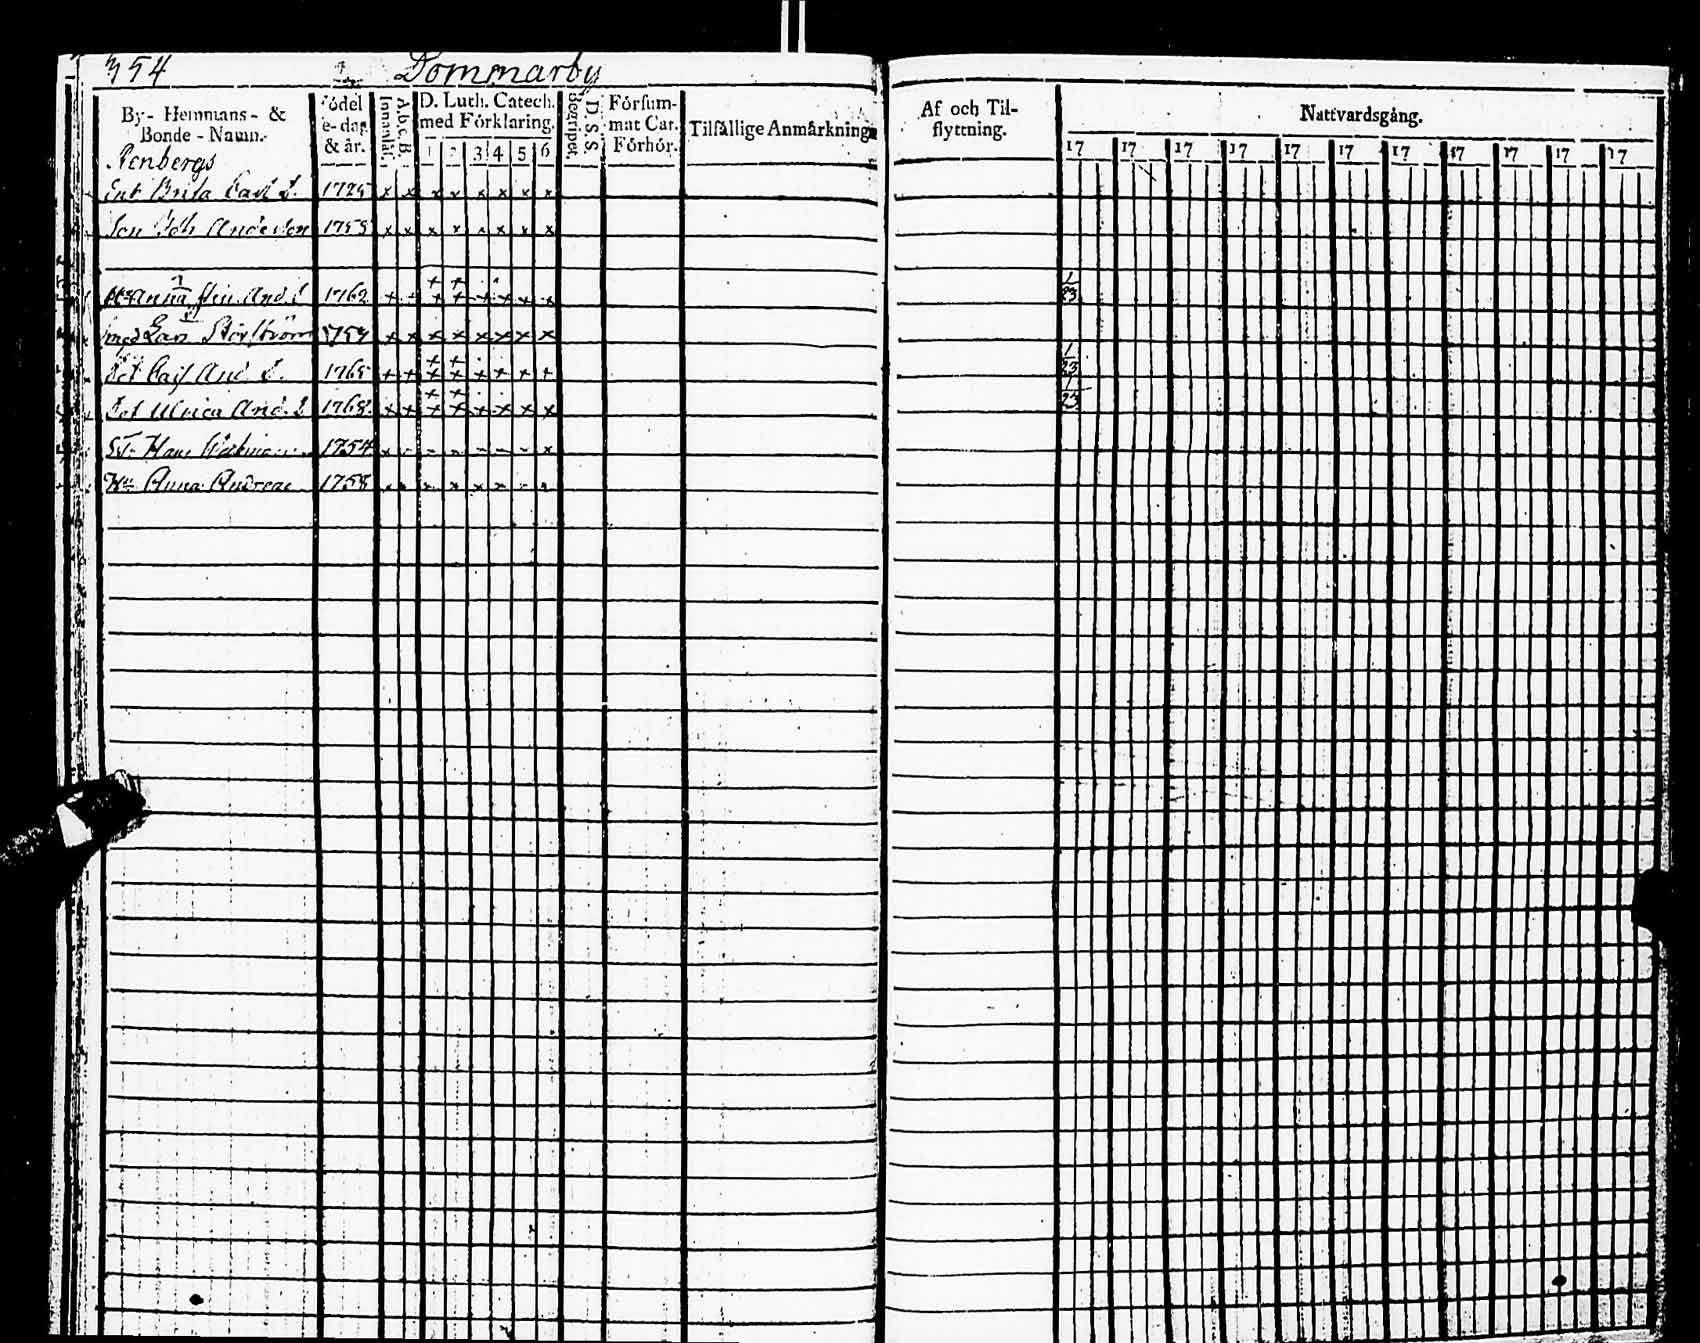 354 Dommarby
By- Hemmans- &
Bonde-Namn.
Födel
se-dag
& år.
Innantil.
A.b.c.B.
D. Luth. Catech.
med Förklaring.
1 2 3 4 5 6
Begripet.
D. S. S.
Försum-
mat Cat.
Förhör.
Tilfällige Anmårkning
Af och Til-
flyttning.
Nattvardsgång.
17 17 17 17 17 17 17 17 17 17 17
Renbergs
Enk Brita Carl D. 1725
Son Joh Anderson 1755
Anna Stin And D 1762 1/23
med Lars 1759
Det Cajs And D. 1765 1/23
Det Ulrica And. D 1768 1/23
Hans 1754
Hu Anna Andreae 1758